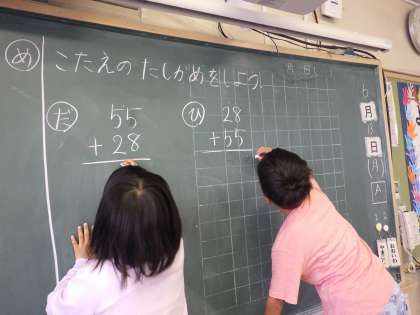 め こたえの たしかめをしよう。
だ
55
+28
ひ
28
+55
6
月
13
日
(月)